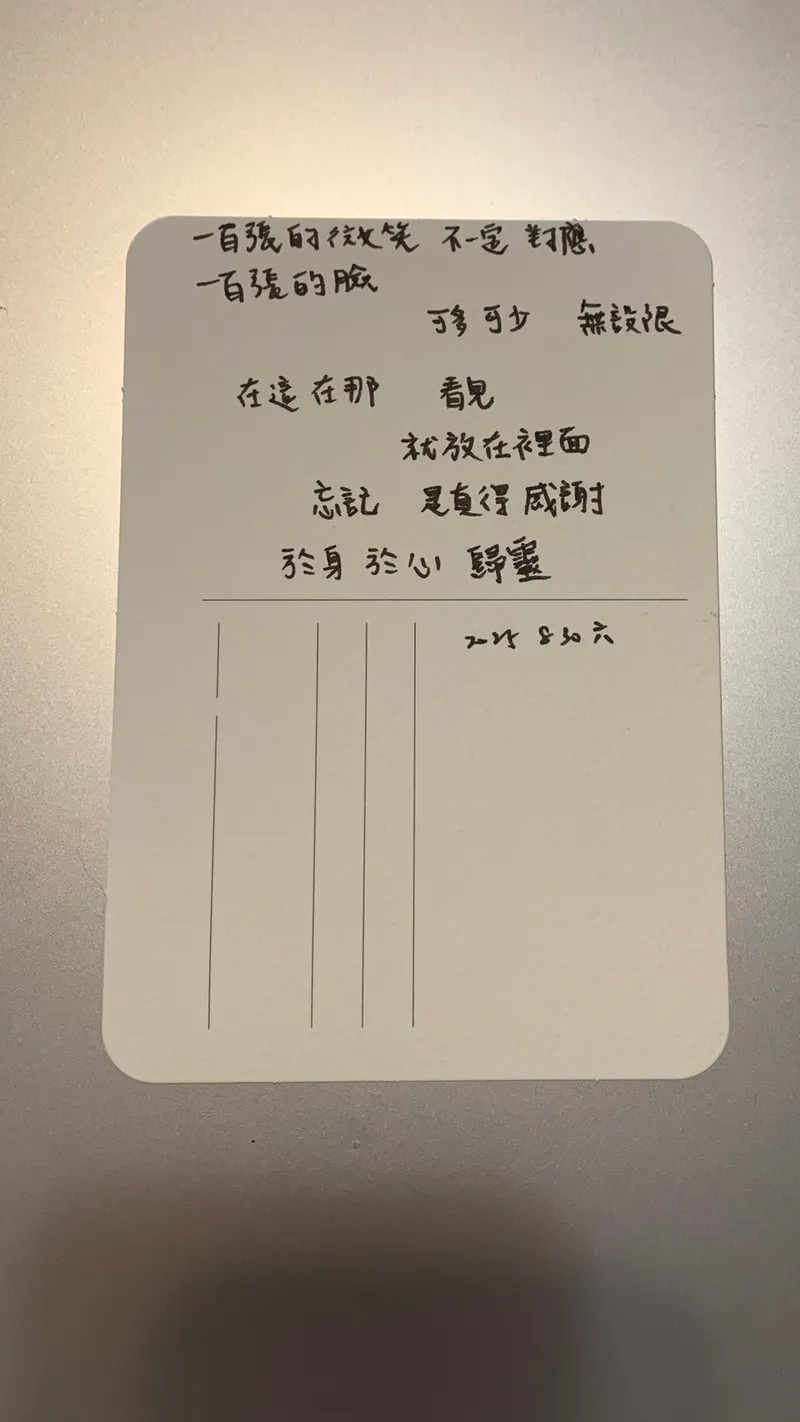 一百張的微笑 不一定 對應
一百張的臉
可多可少 無設限
在這在那 看見
就放在裡面
忘記 是真得感謝
於身 於心 歸靈
2025 8 30 六